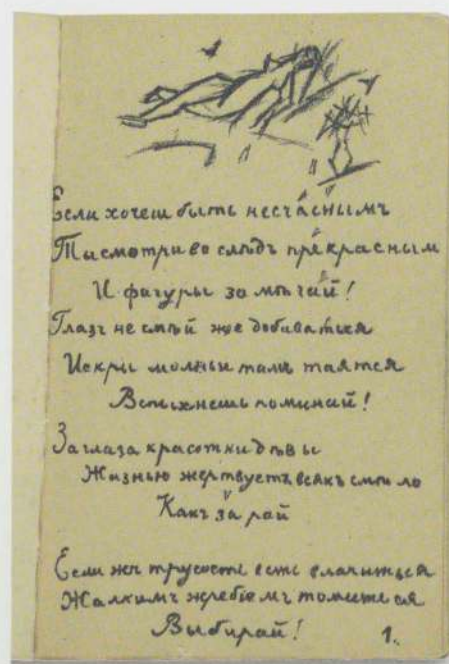 Если хочеш быть несчаснымъ
Ты смотри во слѣдъ прекраснымъ
И фигуры замѣчай!
Глазъ не смѣй же добиваться
Искры молньи тамъ таятся
Вспыхнешь поминай!
За глаза красотки дѣвы
Жизнью жертвуетъ всякъ смѣло
Какъ за рай
Если жъ трусость есть влачиться
Жалкимъ жребіемъ томиться
Выбирай!
1.